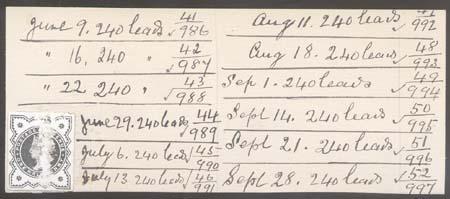 June 9. 240 leads 41/986
" 16. 240 " 42/987
" 22 240 " 43/988
June 29. 240 leads 44/989
July 6. 240 leads 45/990
July 13 240 leads 46/991
Aug 11. 240 leads 992
Aug 18. 240 leads 48/993
Sep 1. 240 leads 49/994
Sept 14. 240 leads 50/995
Sept 21. 240 leads 51/996
Sept 28. 240 leads 52/997